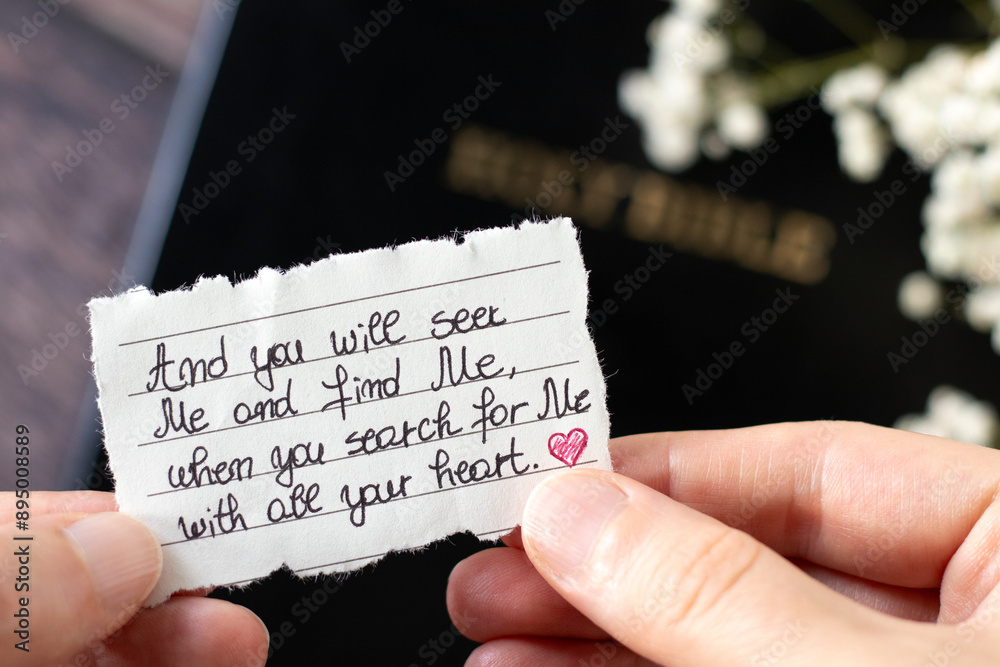 HOLY BIBLE
And you will seek
Me and find Me,
when you search for Me
with all your heart.
Adobe Stock | #895008589